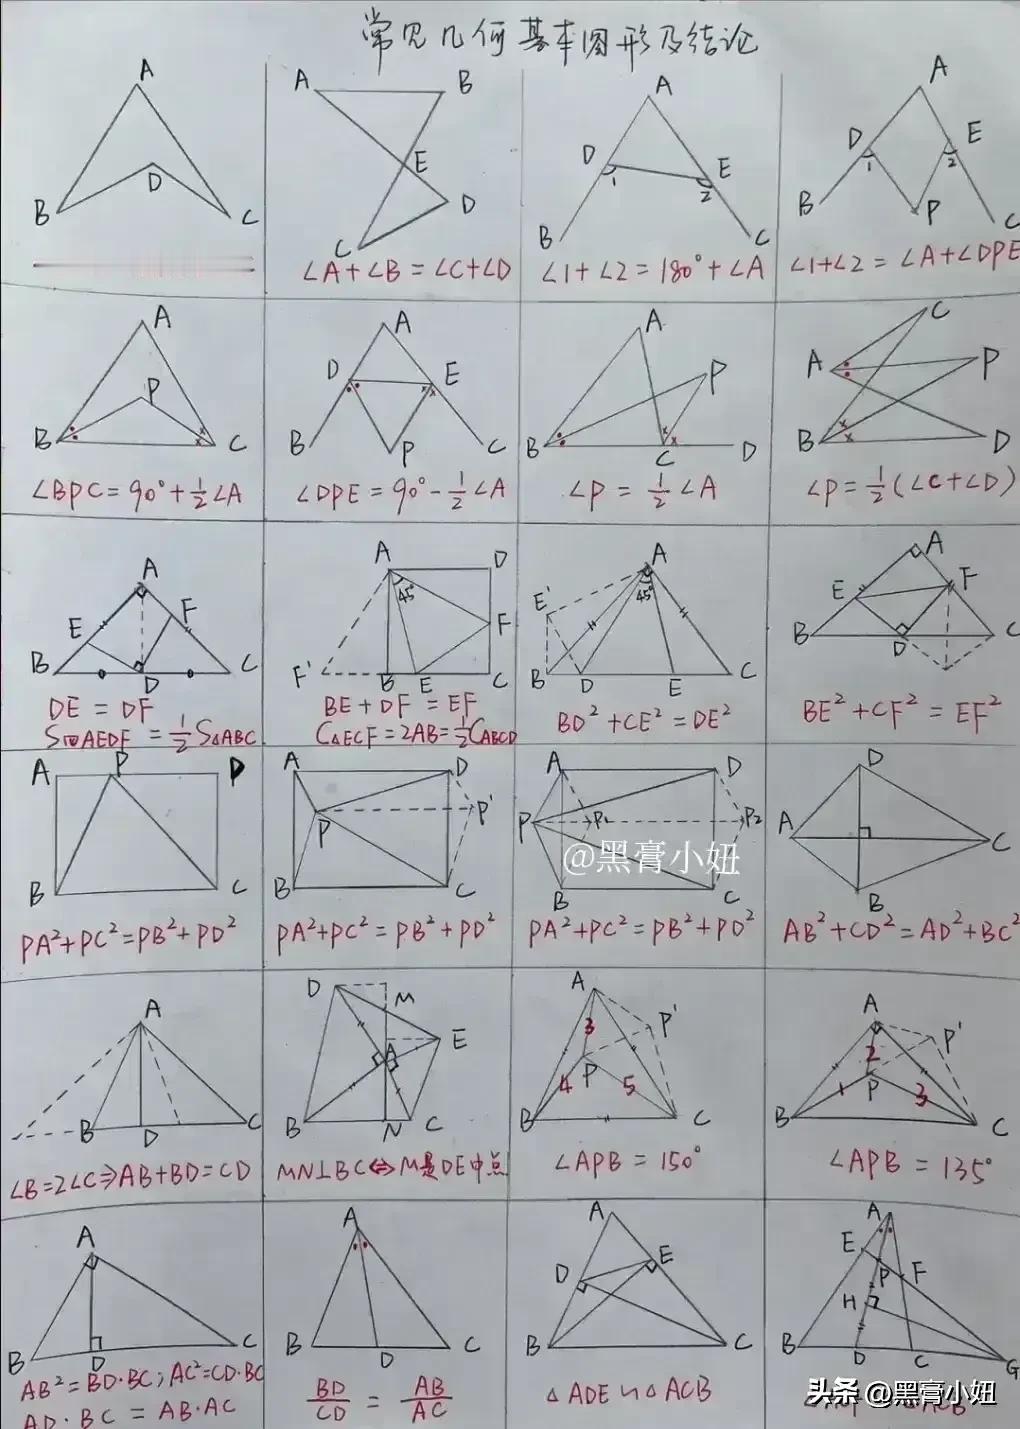 常见几何基本图形及结论
A
D
B
C
A
B
E
D
C
∠A+∠B=∠C+∠D
A
D
E
1
2
B
C
∠1+∠2=180°+∠A
A
D
E
1
2
B
P
C
∠1+∠2=∠A+∠DPE
A
P
B
C
∠BPC=90°+½∠A
A
D
E
B
P
C
∠DPE=90°-½∠A
A
P
B
C
D
∠P=½∠A
C
A
P
B
D
∠P=½(∠C+∠D)
A
E
F
B
D
C
DE=DF
S四AEDF=½S△ABC
A
D
45°
F
F'
B
E
C
BE+DF=EF
C△ECF=2AB=½CABCD
A
E'
45°
B
D
E
C
BD²+CE²=DE²
A
E
F
B
D
C
BE²+CF²=EF²
A
P
D
B
C
PA²+PC²=PB²+PD²
A
D
P
P'
B
C
PA²+PC²=PB²+PD²
A
D
P
P₁
P₂
B
C
@黑膏小妞
PA²+PC²=PB²+PD²
D
A
C
B
AB²+CD²=AD²+BC²
A
B
D
C
∠B=2∠C⇒AB+BD=CD
D
M
A
E
B
N
C
MN⊥BC⇔M是DE中点
A
3
P'
4
P
5
B
C
∠APB=150°
A
2
P'
1
P
3
B
C
∠APB=135°
A
B
D
C
AB²=BD·BC;AC²=CD·BC
AD·BC=AB·AC
A
B
D
C
BD/CD=AB/AC
A
D
E
B
C
△ADE∽△ACB
A
E
P
F
H
B
D
C
G
头条 @黑膏小妞